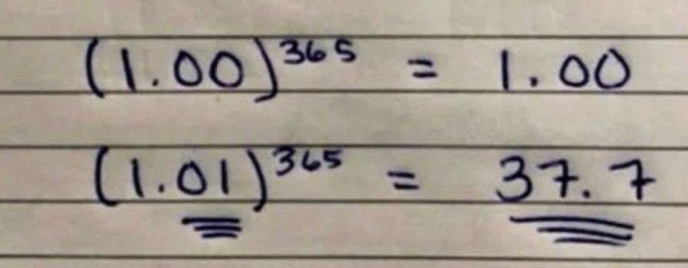 (1.00)³⁶⁵ = 1.00
(1.01)³⁶⁵ = 37.7